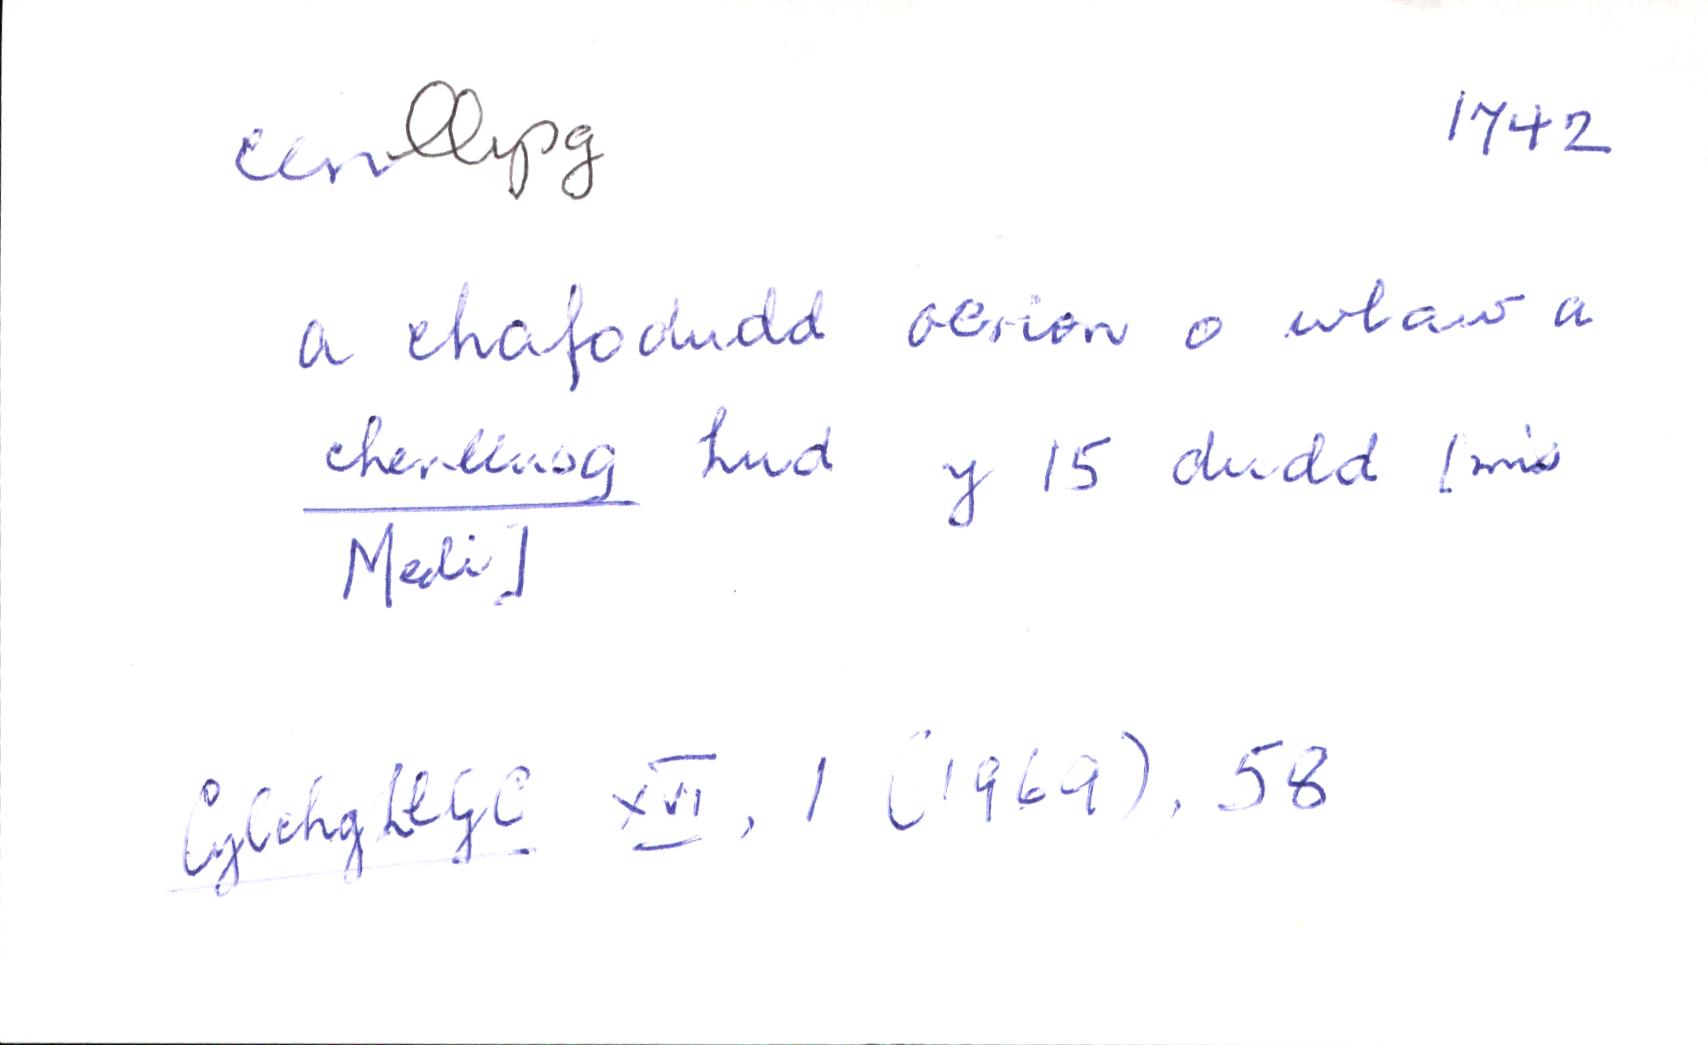 cenllysg 1742
a chafodudd oerion o wlaw a
chenllusg hud y 15 dudd [mis
Medi]
CylchgLlGC XVI, 1 (1969), 58